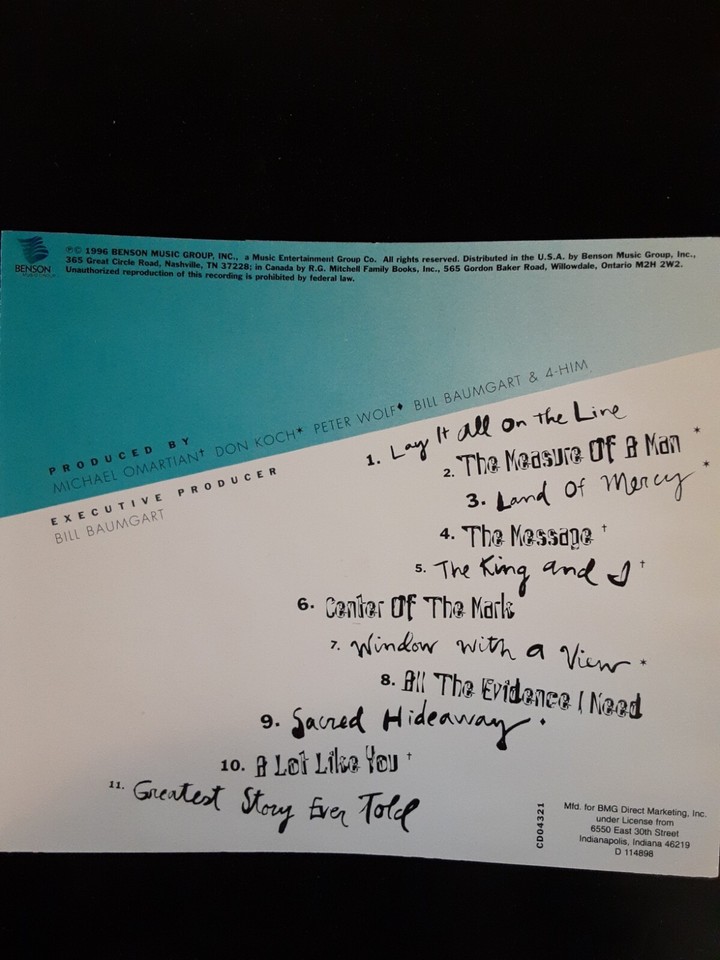 BENSON
℗© 1996 BENSON MUSIC GROUP, INC., a Music Entertainment Group Co. All rights reserved. Distributed in the U.S.A. by Benson Music Group, Inc.,
365 Great Circle Road, Nashville, TN 37228; in Canada by R.G. Mitchell Family Books, Inc., 565 Gordon Baker Road, Willowdale, Ontario M2H 2W2.
Unauthorized reproduction of this recording is prohibited by federal law.
PRODUCED BY
MICHAEL OMARTIAN† DON KOCH* PETER WOLF♦ BILL BAUMGART & 4-HIM
EXECUTIVE PRODUCER
BILL BAUMGART
1. Lay It All On the Line
2. The Measure Of A Man *
3. Land Of Mercy *
4. The Message †
5. The King and I †
6. Center Of The Mark
7. Window with a View *
8. All The Evidence I Need
9. Sacred Hideaway ♦
10. A Lot Like You †
11. Greatest Story Ever Told
CD04321
Mfd. for BMG Direct Marketing, Inc.
under License from
6550 East 30th Street
Indianapolis, Indiana 46219
D 114898